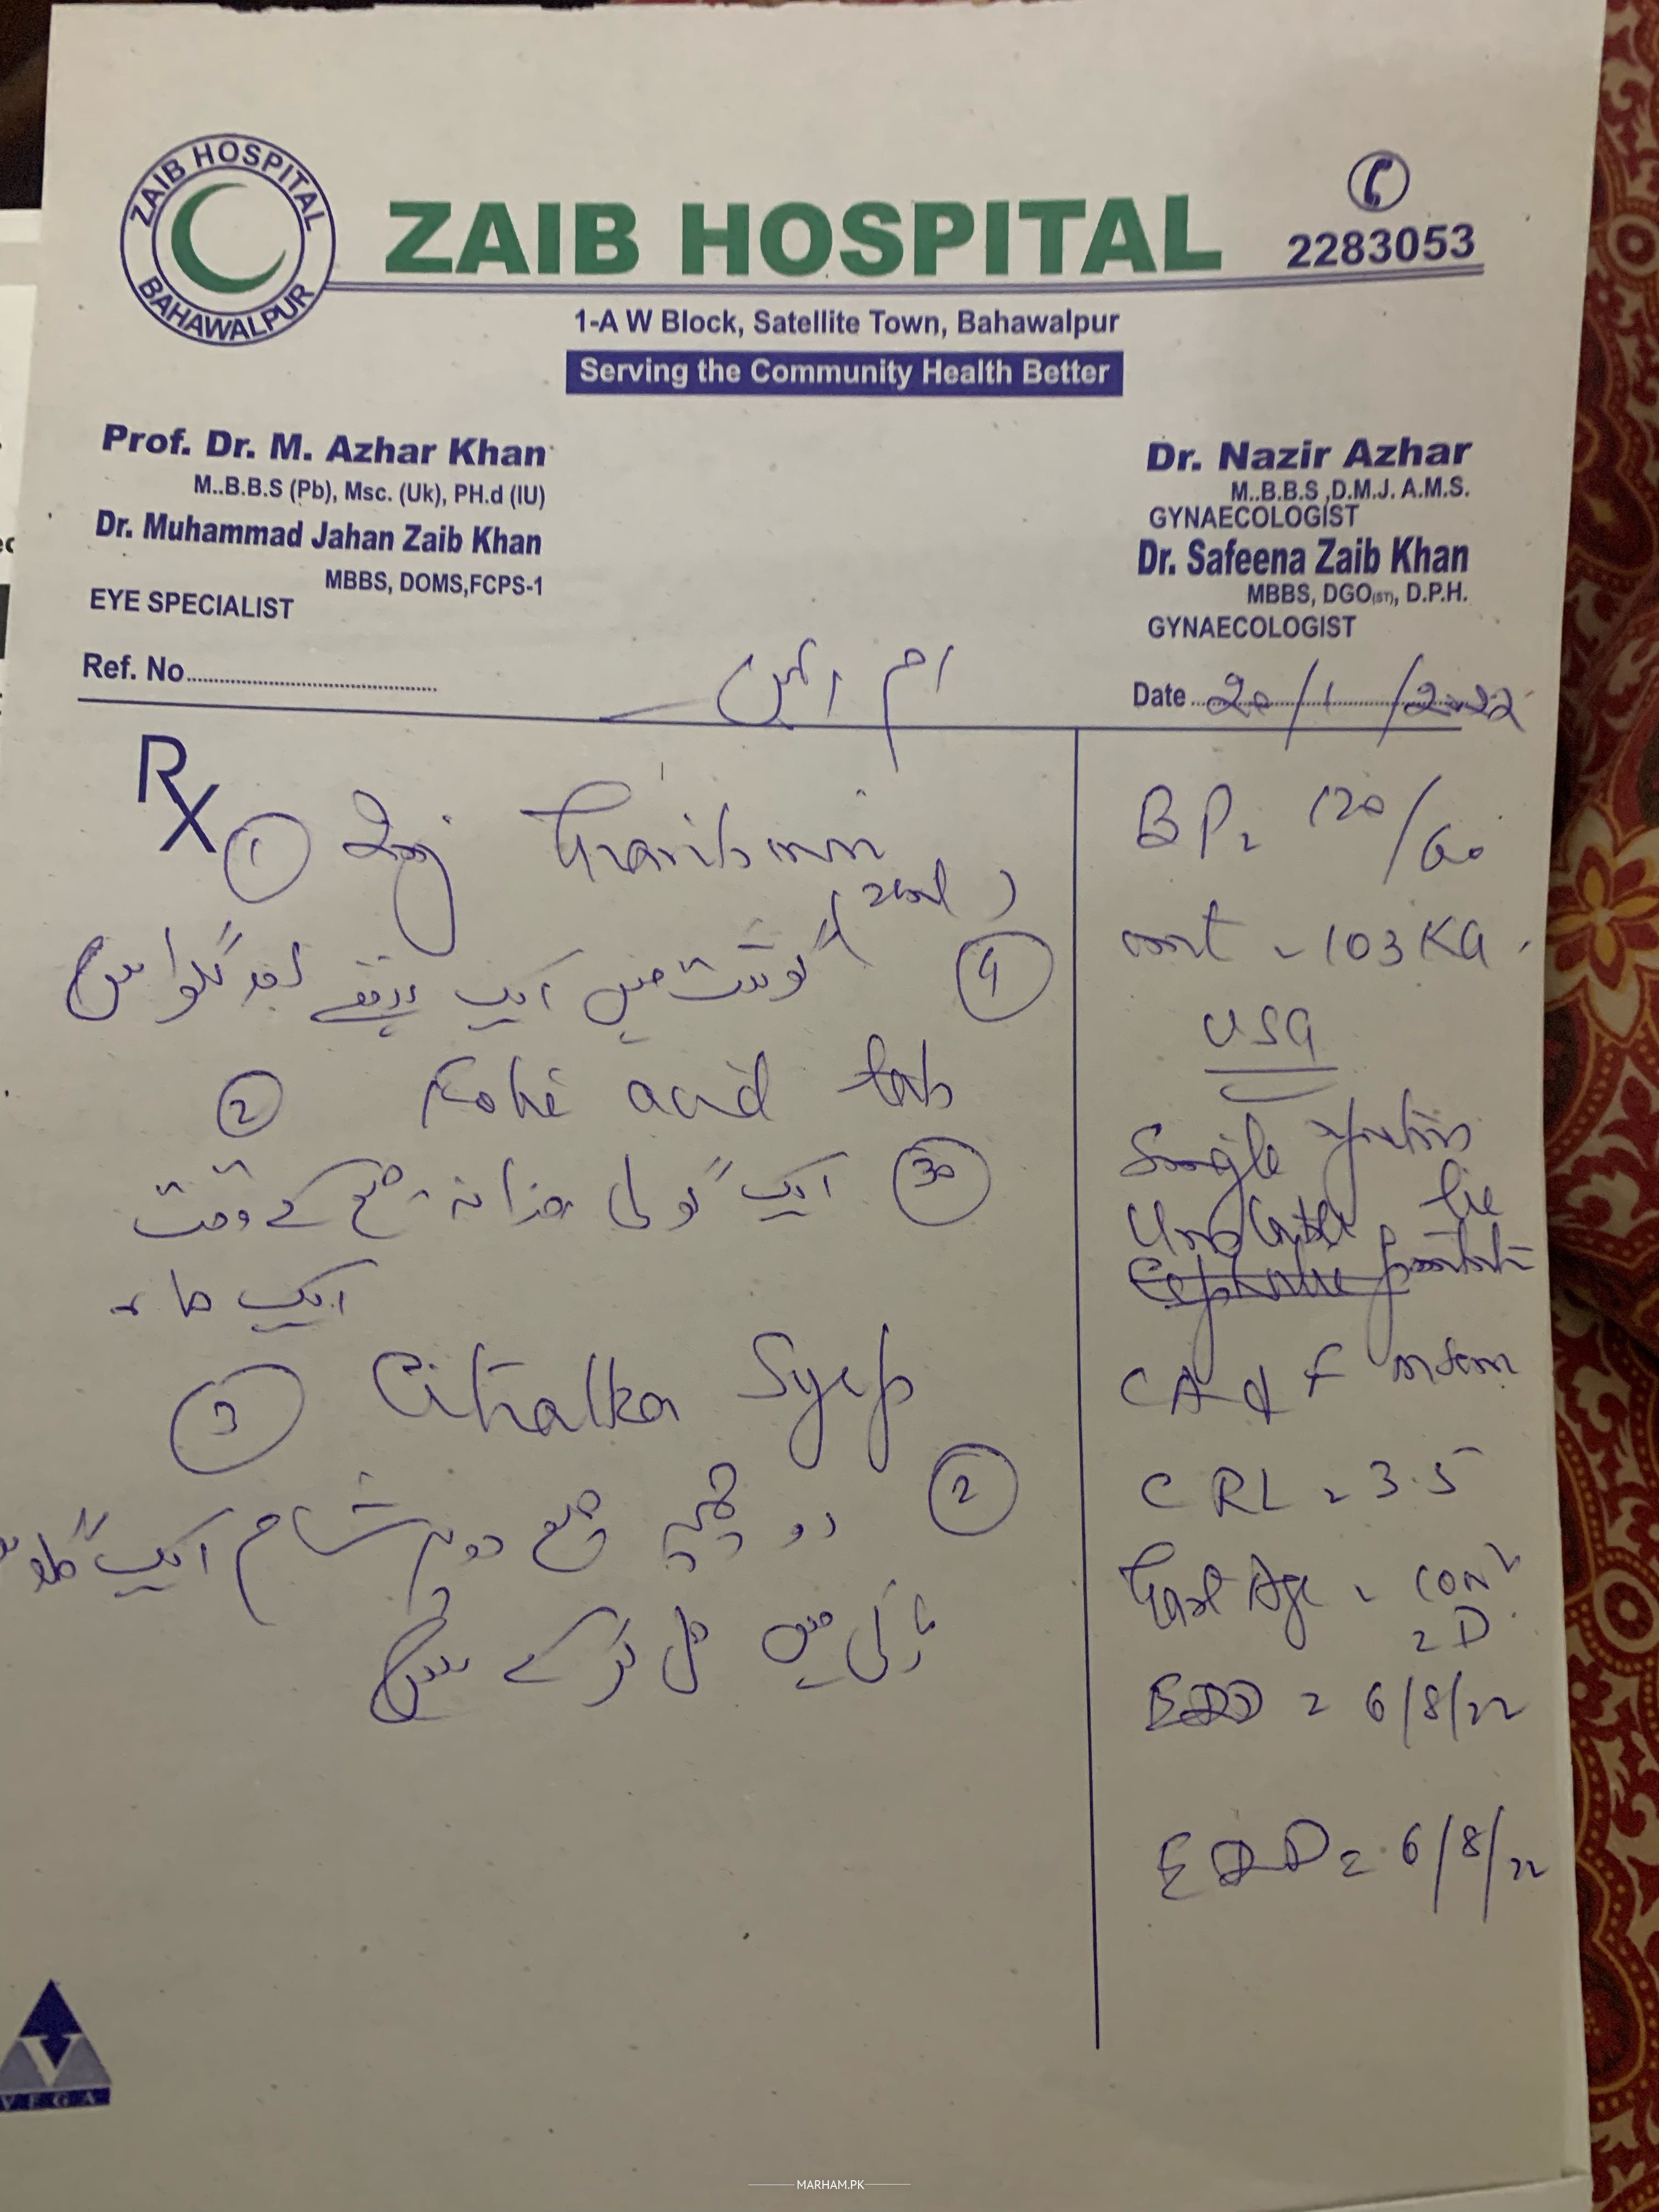 ZAIB HOSPITAL
BAHAWALPUR
ZAIB HOSPITAL
2283053
1-A W Block, Satellite Town, Bahawalpur
Serving the Community Health Better
Prof. Dr. M. Azhar Khan
M..B.B.S (Pb), Msc. (Uk), PH.d (IU)
Dr. Muhammad Jahan Zaib Khan
MBBS, DOMS,FCPS-1
EYE SPECIALIST
Dr. Nazir Azhar
M..B.B.S ,D.M.J. A.M.S.
GYNAECOLOGIST
Dr. Safeena Zaib Khan
MBBS, DGO(ST), D.P.H.
GYNAECOLOGIST
Ref. No
ام
Date 20/1/2022
Rx
1 Inj
گوشت میں ایک ہفتے بعد لگوائیں 4
2 Folic acid tab
ایک گولی روزانہ صبح کے وقت 30
ایک ماہ
3 Citralka Syrup
دو چمچ صبح دوپہر شام ایک گلاس 2
پانی میں حل کر کے پئیں
BP = 120/60
wt = 103 KG
USG
Single
lie
CRL = 3.5
Age = 10W
2D
EDD = 6/8/22
EDD = 6/8/22
VEGA
MARHAM.PK